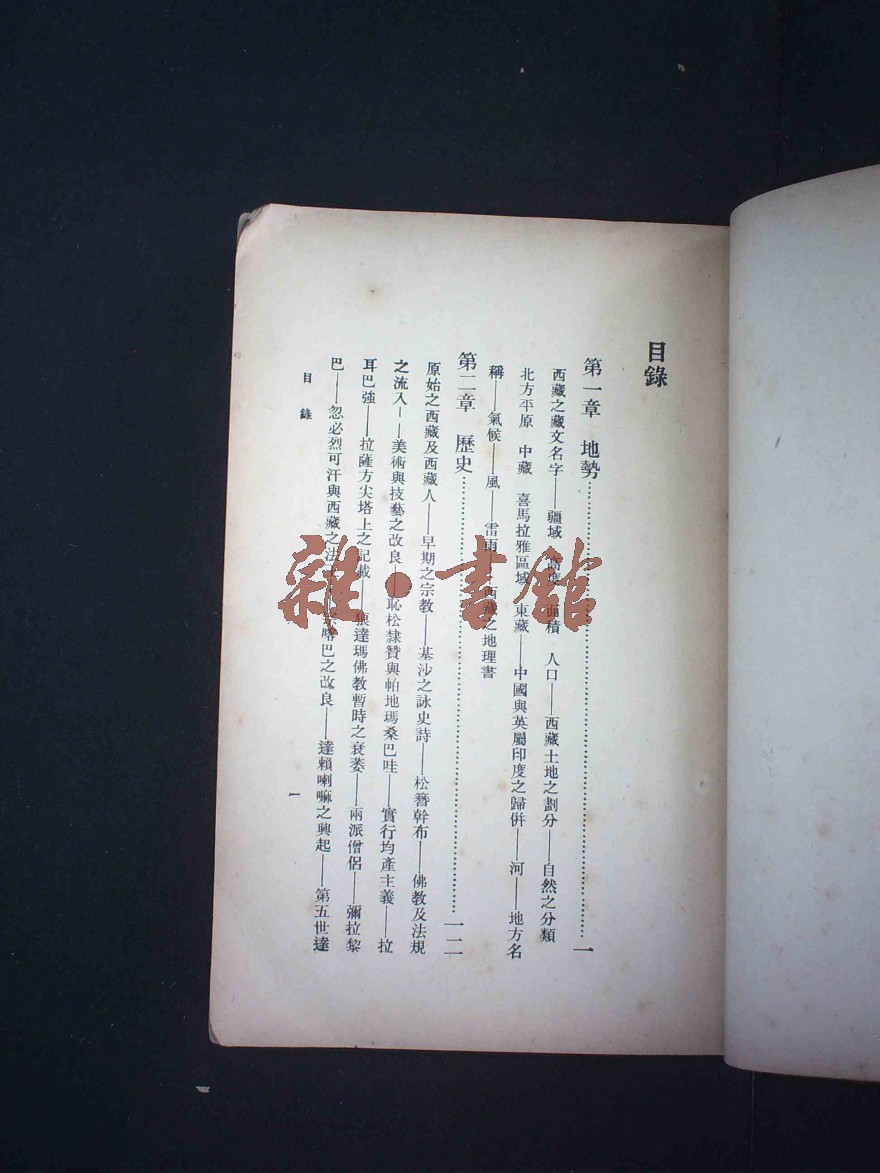 目錄
第一章　地勢…………一
西藏之藏文名字——疆域　高度　面積　人口——西藏土地之劃分——自然之分類
北方平原　中藏　喜馬拉雅區域　東藏——中國與英屬印度之歸併——河——地方名
稱——氣候——風——雷雨——西藏之地理書
第二章　歷史…………一二
原始之西藏及西藏人——早期之宗教——基沙之詠史詩——松簪幹布——佛教及法規
之流入——美術與技藝之改良——恥松隸贊與帕地瑪桑巴哇——實行均產主義——拉
耳巴強——拉薩方尖塔上之記載——狼達瑪佛教暫時之衰萎——兩派僧侶——彌拉黎
巴——忽必烈可汗與西藏之法　　喀巴之改良——達賴喇嘛之興起——第五世達
目錄
一
雜·書館